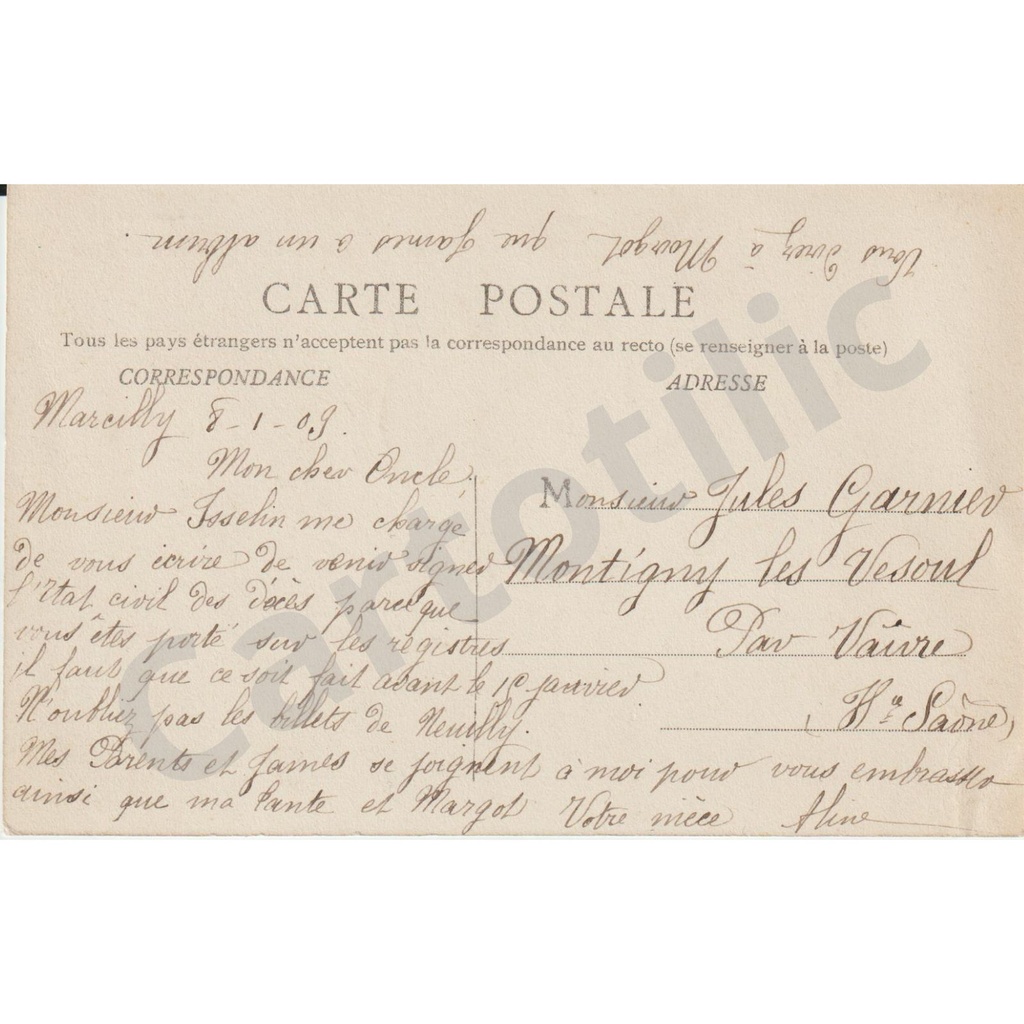 Vous direz à Margot que James a un album.
CARTE POSTALE
Tous les pays étrangers n'acceptent pas la correspondance au recto (se renseigner à la poste)
CORRESPONDANCE
Marcilly 8-1-09.
Mon cher Oncle,
Monsieur Isselin me charge
de vous écrire de venir signer
l'état civil des décès parce que
vous êtes porté sur les registres
il faut que ce soit fait avant le 15 janvier
N'oubliez pas les billets de Neuilly.
Mes Parents et James se joignent à moi pour vous embrasser
ainsi que ma Tante et Margot Votre nièce Aline
ADRESSE
Monsieur Jules Garnier
Montigny les Vesoul
Par Vaivre
(Hte Saône)
Cartotilic